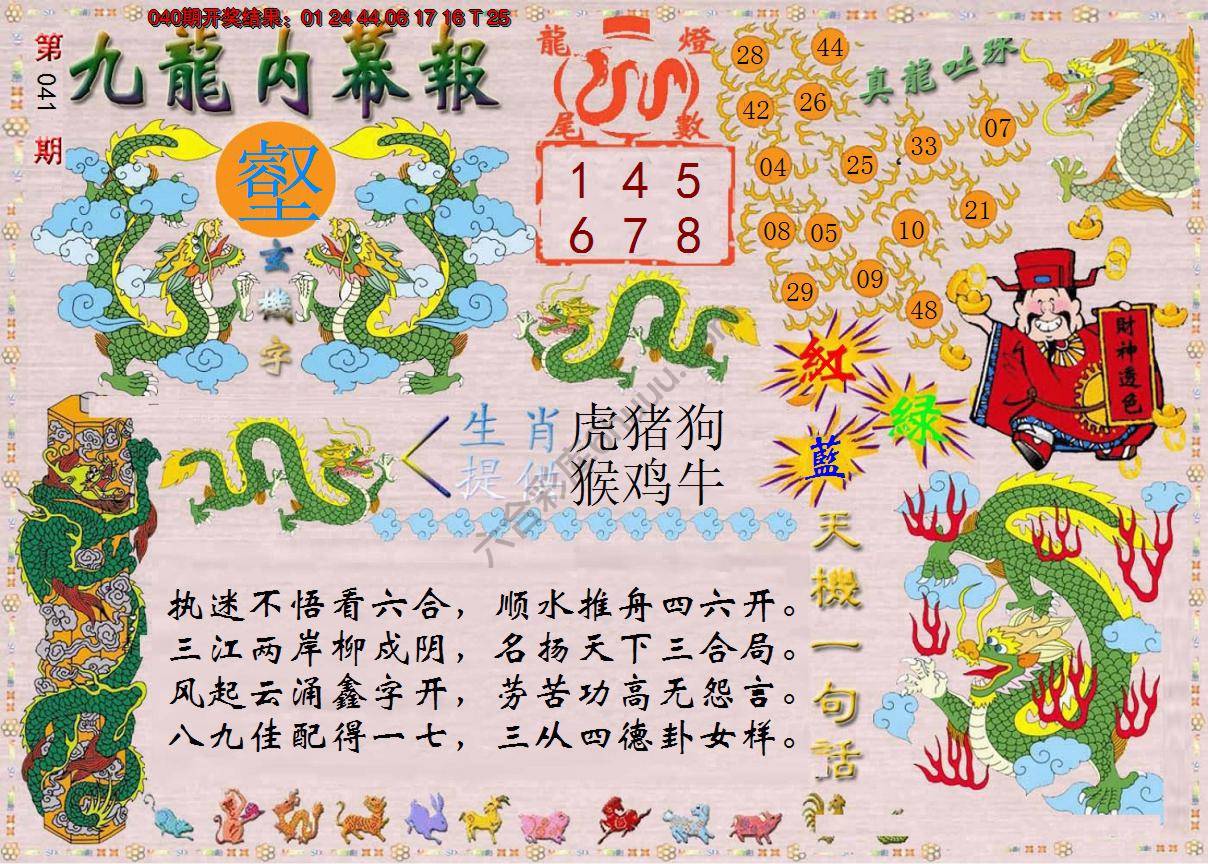 040期开奖结果：01 24 44.06 17 16 T 25
第041期
九龍内幕報
壡
玄機字
龍燈
尾數
1 4 5
6 7 8
真龍吐珠
28 44
42 26
04 25 33 07
08 05 10 21
29 09 48
財神透色
紅
綠
藍
生肖 虎猪狗
提供 猴鸡牛
天機一句話
执迷不悟看六合，顺水推舟四六开。
三江两岸柳成阴，名扬天下三合局。
风起云涌鑫字开，劳苦功高无怨言。
八九佳配得一七，三从四德卦女样。